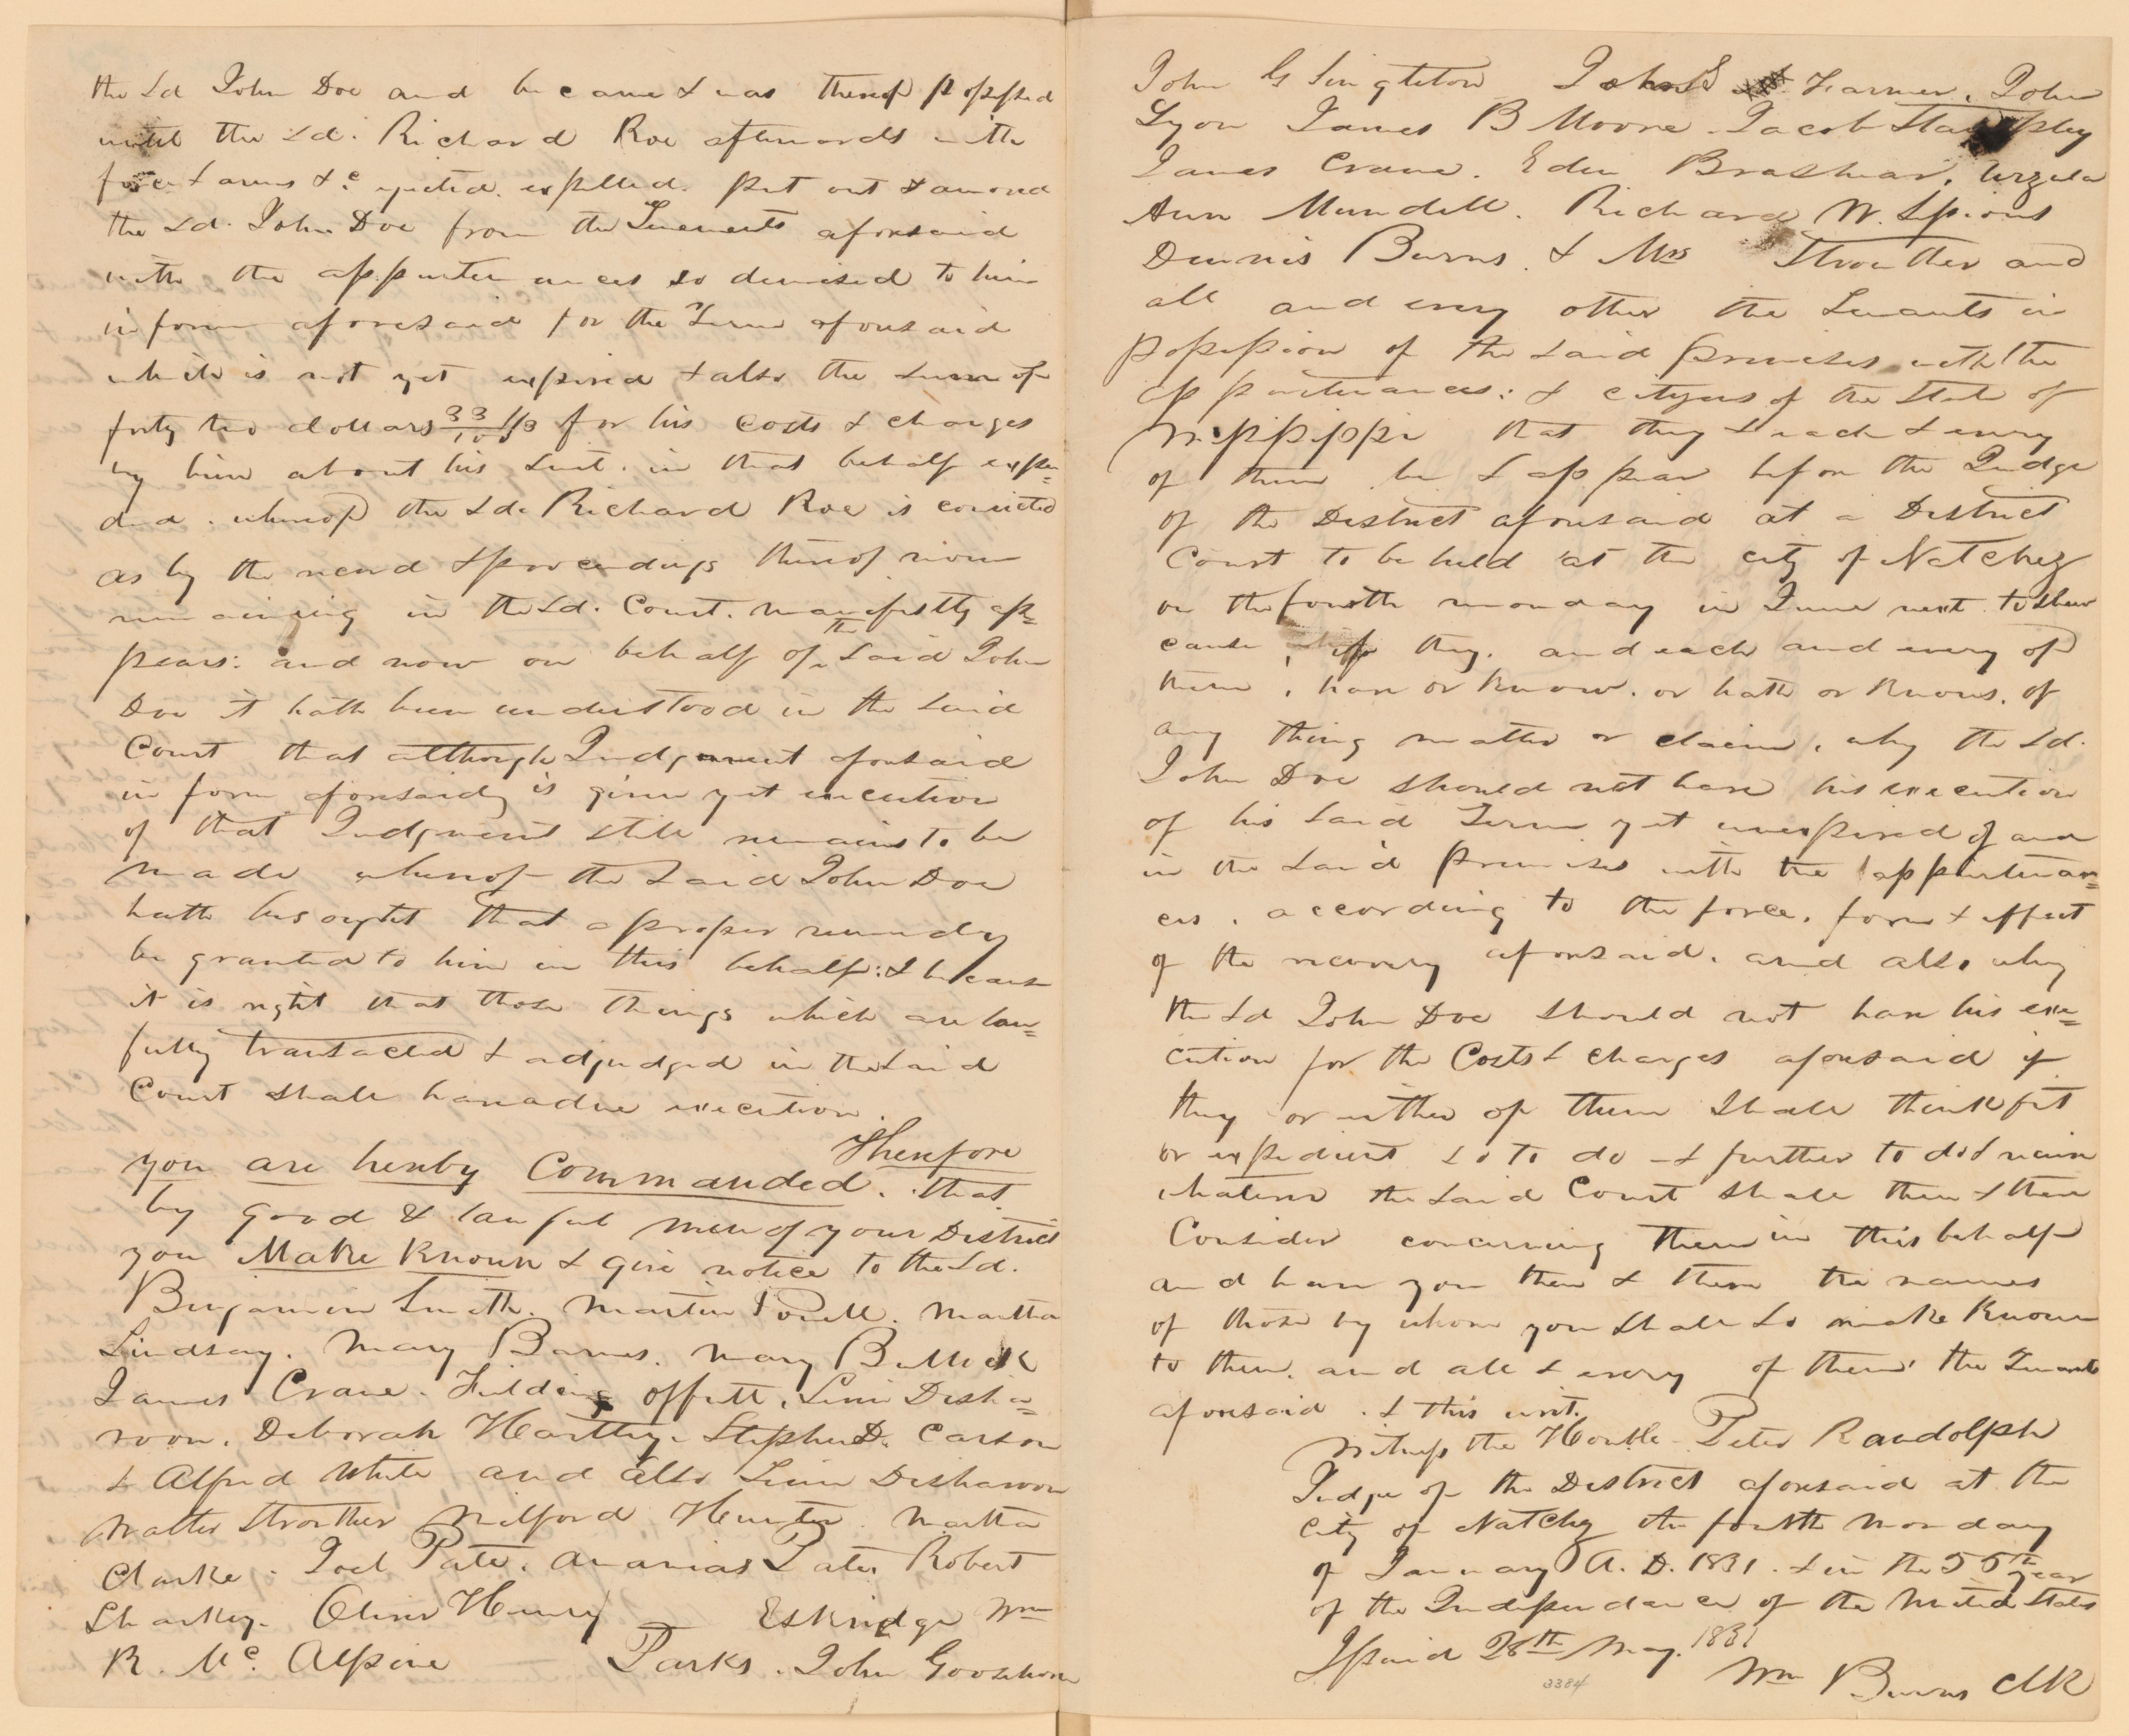 the Sd John Doe and became & was thereof possessed
until the Sd. Richard Roe afterwards with
force & arms &c ejected. expelled. put out & amoved
the Sd. John Doe from the Tenements aforesaid
with the appurtenances so demised to him
in form aforesaid for the Term aforesaid
which is not yet expired & also the sum of
forty two dollars 33/100 1/3 for his Costs & charges
by him about his suit. in that behalf expen=
ded. whereof the Sd. Richard Roe is convicted
as by the record & proceedings thereof now
remaining in the Sd. Court. manifestly ap=
pears: and now on behalf of the Said John
Doe it hath been understood in the Said
Court that although Judgment aforesaid
in form aforesaid is given yet execution
of that Judgment still remains to be
made whereof the Said John Doe
hath besought that a proper remedy
be granted to him in this behalf: & because
it is right that those things which are law=
fully transacted & adjudged in the Said
Court shall have a due execution.
Therefore
you are hereby Commanded. that
by good & lawful men of your District
you Make Known & give notice to the Sd.
Benjamin Smith. Martin Powell. Martha
Lindsay. Mary Barnes. Mary Bullock
James Crane. Fielding Offutt, Levin Disha=
roon. Deborah Heartley. Stephen D. Carson
& Alfred White and also Levin Disharoon
Walter Strouther Milford Hunter. Martha
Clarke. Joel Pate. Ananias Pate. Robert
Sharkey. Oliver Henry Eskridge Wm
R. Mc. Alpine Parks. John Goosehorn
John G Singleton John S Farmer. John
Lyon James B Moore. Jacob Stampley
James Crane. Eden Brashear. Urzula
Ann Mundell. Richard W. Spious
Dennis Burns. & Mrs Strouther and
all and every other the Tenants in
possession of the Said premises with the
appurtenances: & citizens of the State of
Mississippi that they & each & every
of them be & appear before the Judge
of the District aforesaid at a District
Court to be held at the city of Natchez
on the fourth monday in June next. to shew
cause if they. and each and every of
them, have or know. or hath or knows. of
any thing matter or claim, why the Sd.
John Doe should not have his execution
of his Said Term yet unexpired of and
in the Said premises with the appurtenan=
ces. according to the force. form & effect
of the recovery aforesaid. and also why
the Sd John Doe should not have his exe=
cution for the Costs & charges aforesaid if
they or either of them shall think fit
or expedient so to do - & further to do & receive
whatever the Said Court shall then & there
Consider concerning them in this behalf
and have you then & there the names
of those by whom you shall so make Known
to them. and all & every of them the Tenants
aforesaid. & this writ.
Witness the Honble Peter Randolph
Judge of the District aforesaid at the
city of Natchez the fourth monday
of January A. D. 1831. & in the 55th year
of the Independance of the United States
Issued 28th May. 1831
Wm Burns Clk
3384